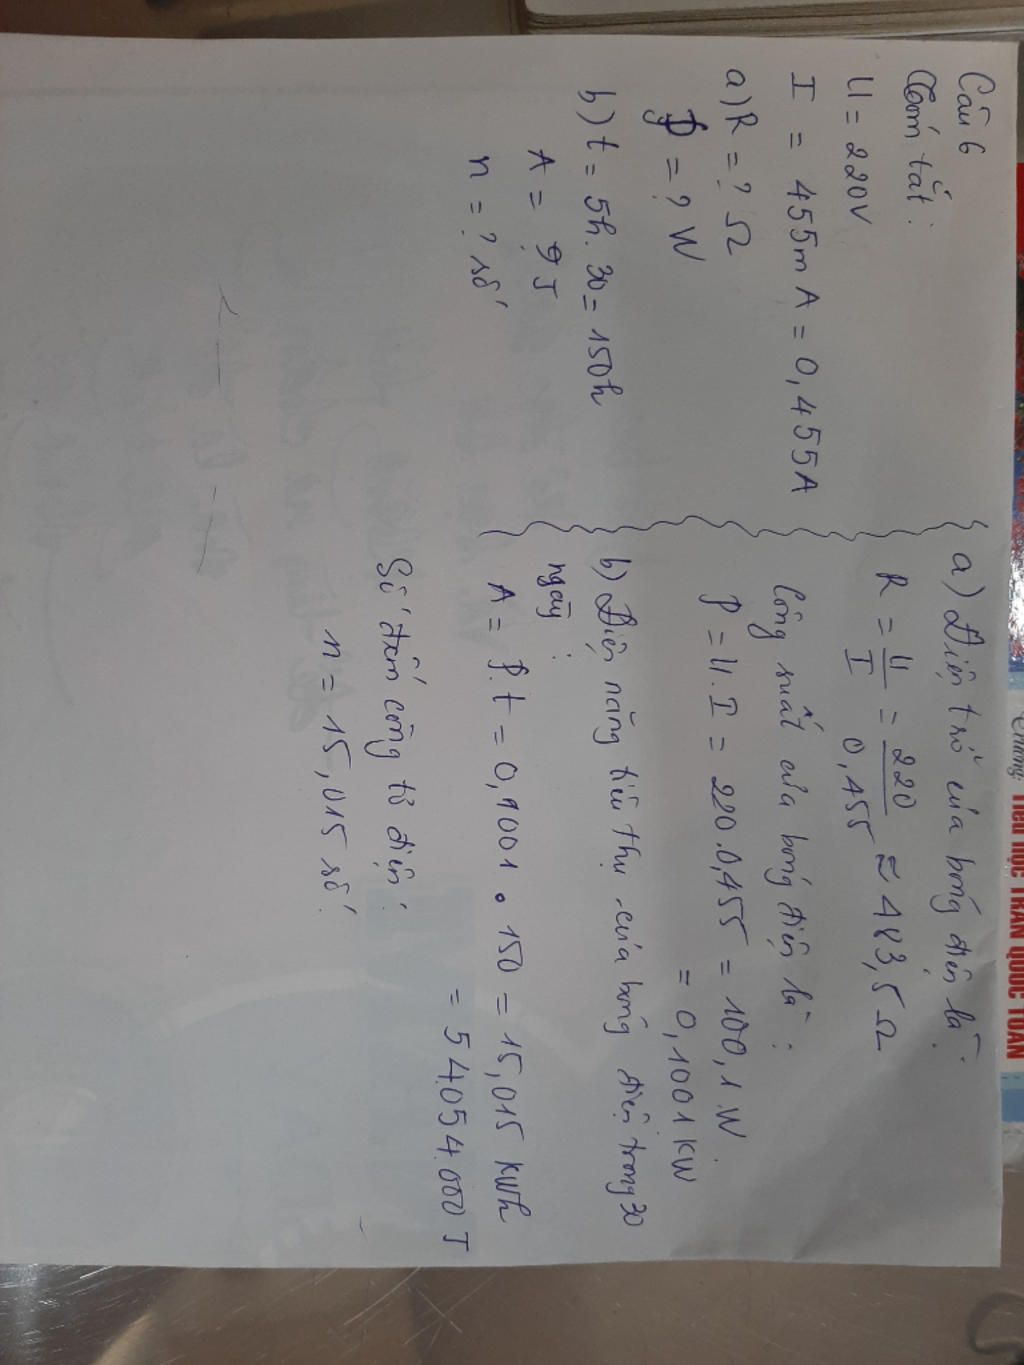 Câu 6
Tóm tắt:
U = 220V
I = 455mA = 0,455A
a) R = ? Ω
P = ? W
b) t = 5h. 30 = 150h
A = ? J
n = ? số
a) Điện trở của bóng điện là:
R = U/I = 220/0,455 ≈ 483,5 Ω
Công suất của bóng điện là:
P = U.I = 220.0,455 = 100,1 W
= 0,1001 KW
b) Điện năng tiêu thụ của bóng điện trong 30
ngày:
A = P.t = 0,1001 . 150 = 15,015 KWh
= 54.054.000 J
Số đếm công tơ điện:
n = 15,015 số
TIỂU HỌC TRẦN QUỐC TOẢN